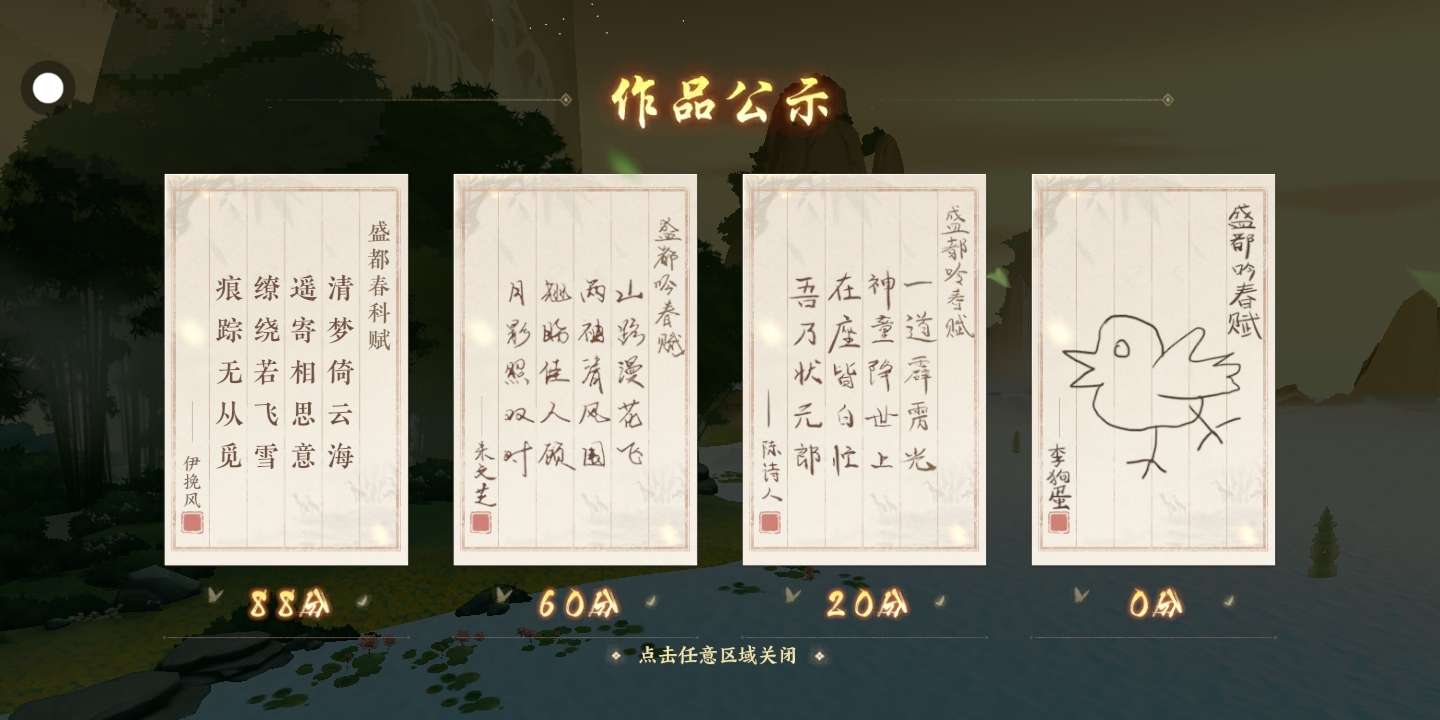 作品公示
盛都春科赋
清梦倚云海
遥寄相思意
缭绕若飞雪
痕踪无从觅
伊挽风
盛都吟春赋
山路漫花飞
两袖清风困
翘盼佳人顾
月影照双对
朱文芒
盛都吟春赋
一道霹雳光
神童降世上
在座皆白忙
吾乃状元郎
陈诗人
盛都吟春赋
李狗蛋
88分
60分
20分
0分
点击任意区域关闭